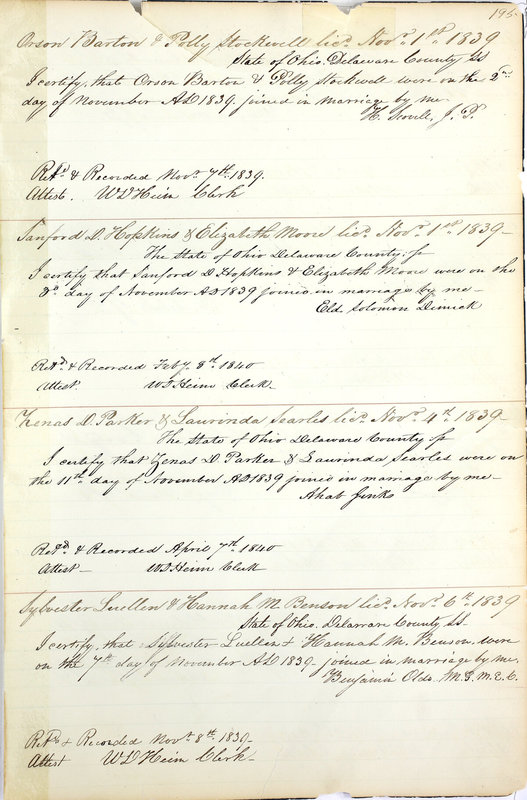 195
Orson Barton & Polly Stockwell licd. Novr. 1st 1839
State of Ohio. Delaware County SS
I certify, that Orson Barton & Polly Stockwell were on the 2nd
day of November AD 1839. joined in marriage by me.
H. Scovill, J. P.
Retd. & Recorded Novr. 7th. 1839.
Attest. W D Heim Clerk
Sanford D. Hopkins & Elizabeth Moore licd. Novr. 1st. 1839-
The State of Ohio Delaware County. ss
I certify that Sanford D Hopkins & Elizabeth Moore were on the
3d. day of November AD 1839 joined in marriage by me-
Eld. Solomon Dimick
Retd. & Recorded Feby. 8th. 1840
Attest. W D Heim Clerk-
Zenas D. Parker & Laurinda Searles licd. Novr. 4th. 1839-
The State of Ohio Delaware County ss
I certify that Zenas D. Parker & Laurinda Searles were on
the 11th. day of November AD 1839 joined in marriage by me-
Ahab Jinks
Retd. & Recorded April 7th. 1840
Attest- W D Heim Clerk
Sylvester Luellen & Hannah M. Benson licd. Novr. 6th. 1839
State of Ohio. Delawran County SS.
I certify, that Sylvester Luellen & Hannah M. Benson, were
on the 7th day of November AD 1839- joined in marriage by me.
Benjamin Olds. M. G. M. E. C.
Retd. & Recorded Novr. 8th. 1839-
Attest W D Heim Clerk-